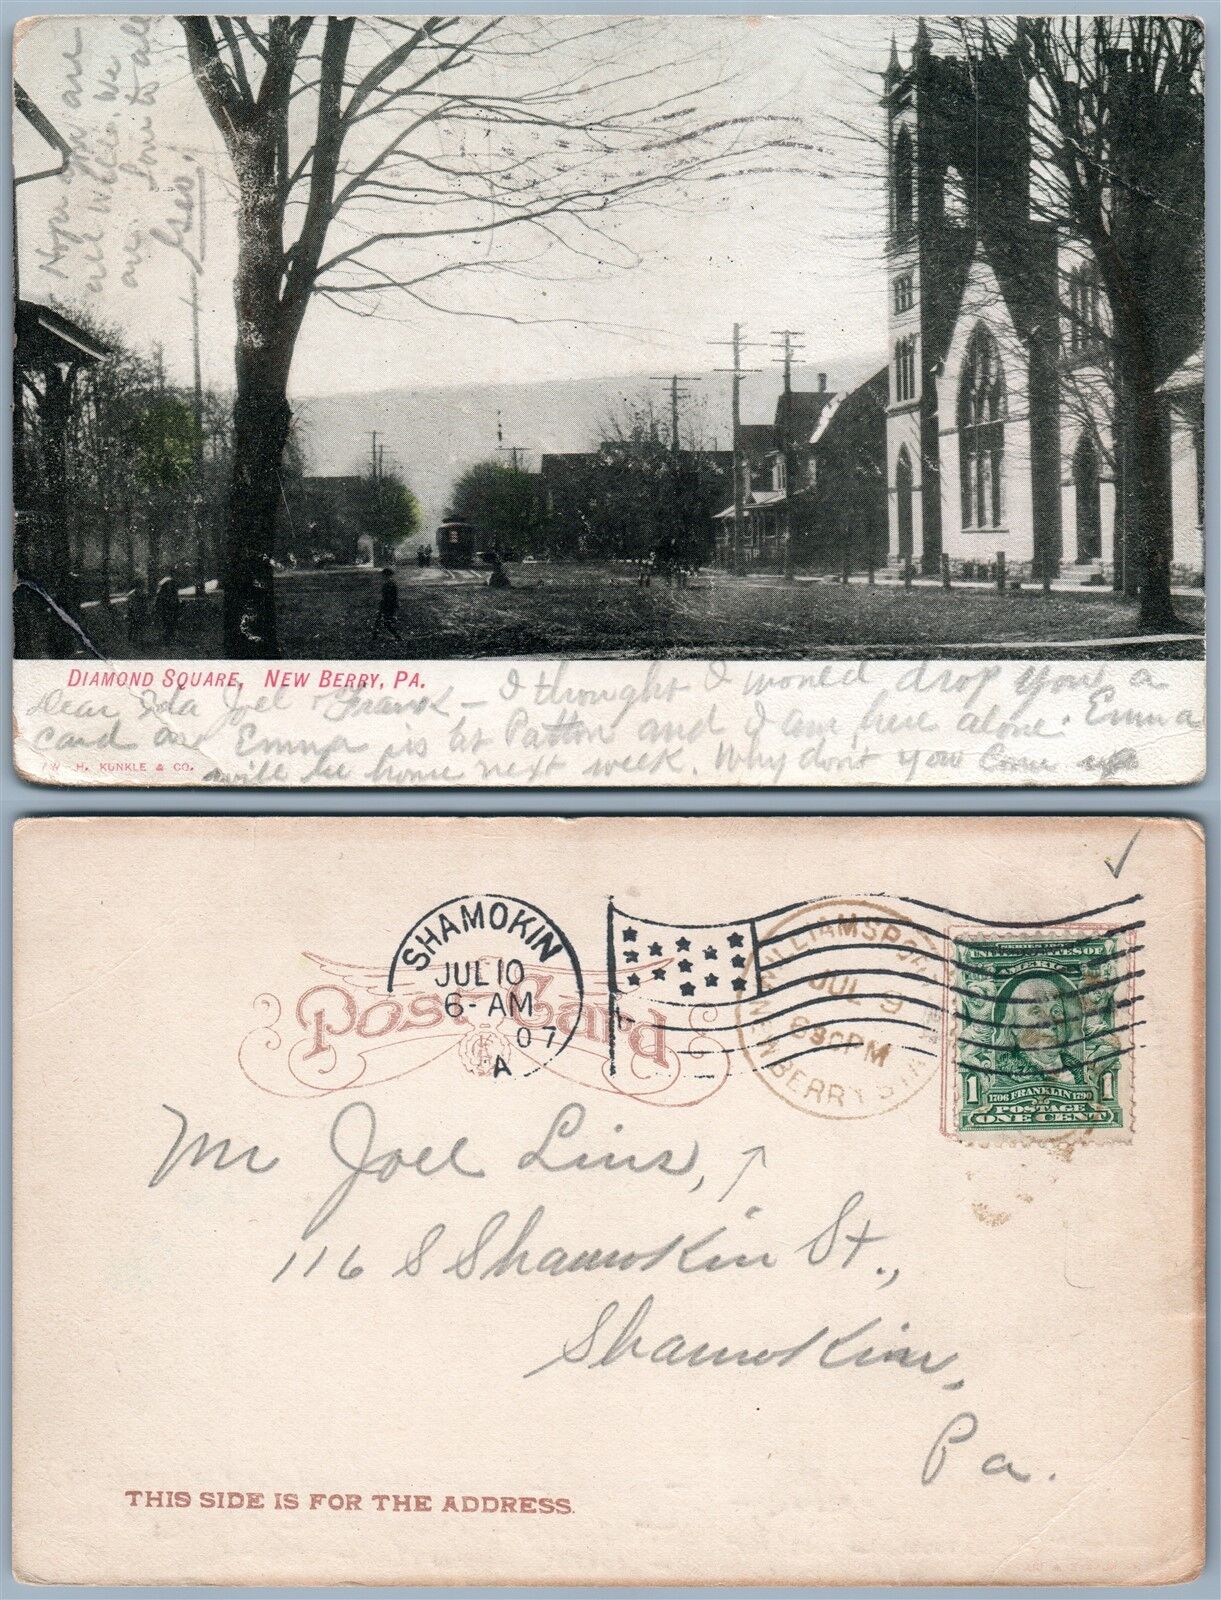 Hope you are
all well. We
are. Love to all
Geo.
DIAMOND SQUARE, NEW BERRY, PA.
Dear Ida Joel & Frank, - I thought I would drop you a
card as Emma is at Patton and I am here alone. Emma
W. H. KUNKLE & CO.
will be home next week. Why don't you come up
SHAMOKIN
JUL 10
6-AM
07
A
WILLIAMSPORT
JUL 9
630PM
NEWBERRY STA
Post Card
UNITED STATES OF
AMERICA
1 1706 FRANKLIN 1790 1
POSTAGE
ONE CENT
Mr Joel Lins,
116 S Shamokin St.,
Shamokin,
Pa.
THIS SIDE IS FOR THE ADDRESS.